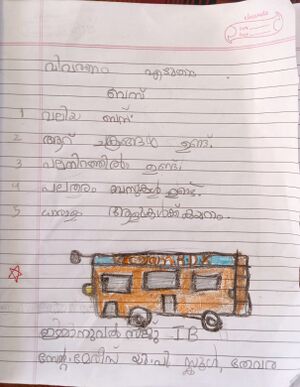 വിവരണം എഴുതുക
ബസ്
1 വലിയ ബസ്
2 ആറ് ചക്രങ്ങൾ ഉണ്ട്.
3 പലനിറത്തിൽ ഉണ്ട്.
4 പലതരം ബസുകൾ ഉണ്ട്.
5 ധാരാളം ആളുകൾക്ക് കയറാം.
ഇമ്മാനുവൽ സിജു IB
സേന്റ് മേരീസ് യു.പി സ്കൂൾ, തേവര